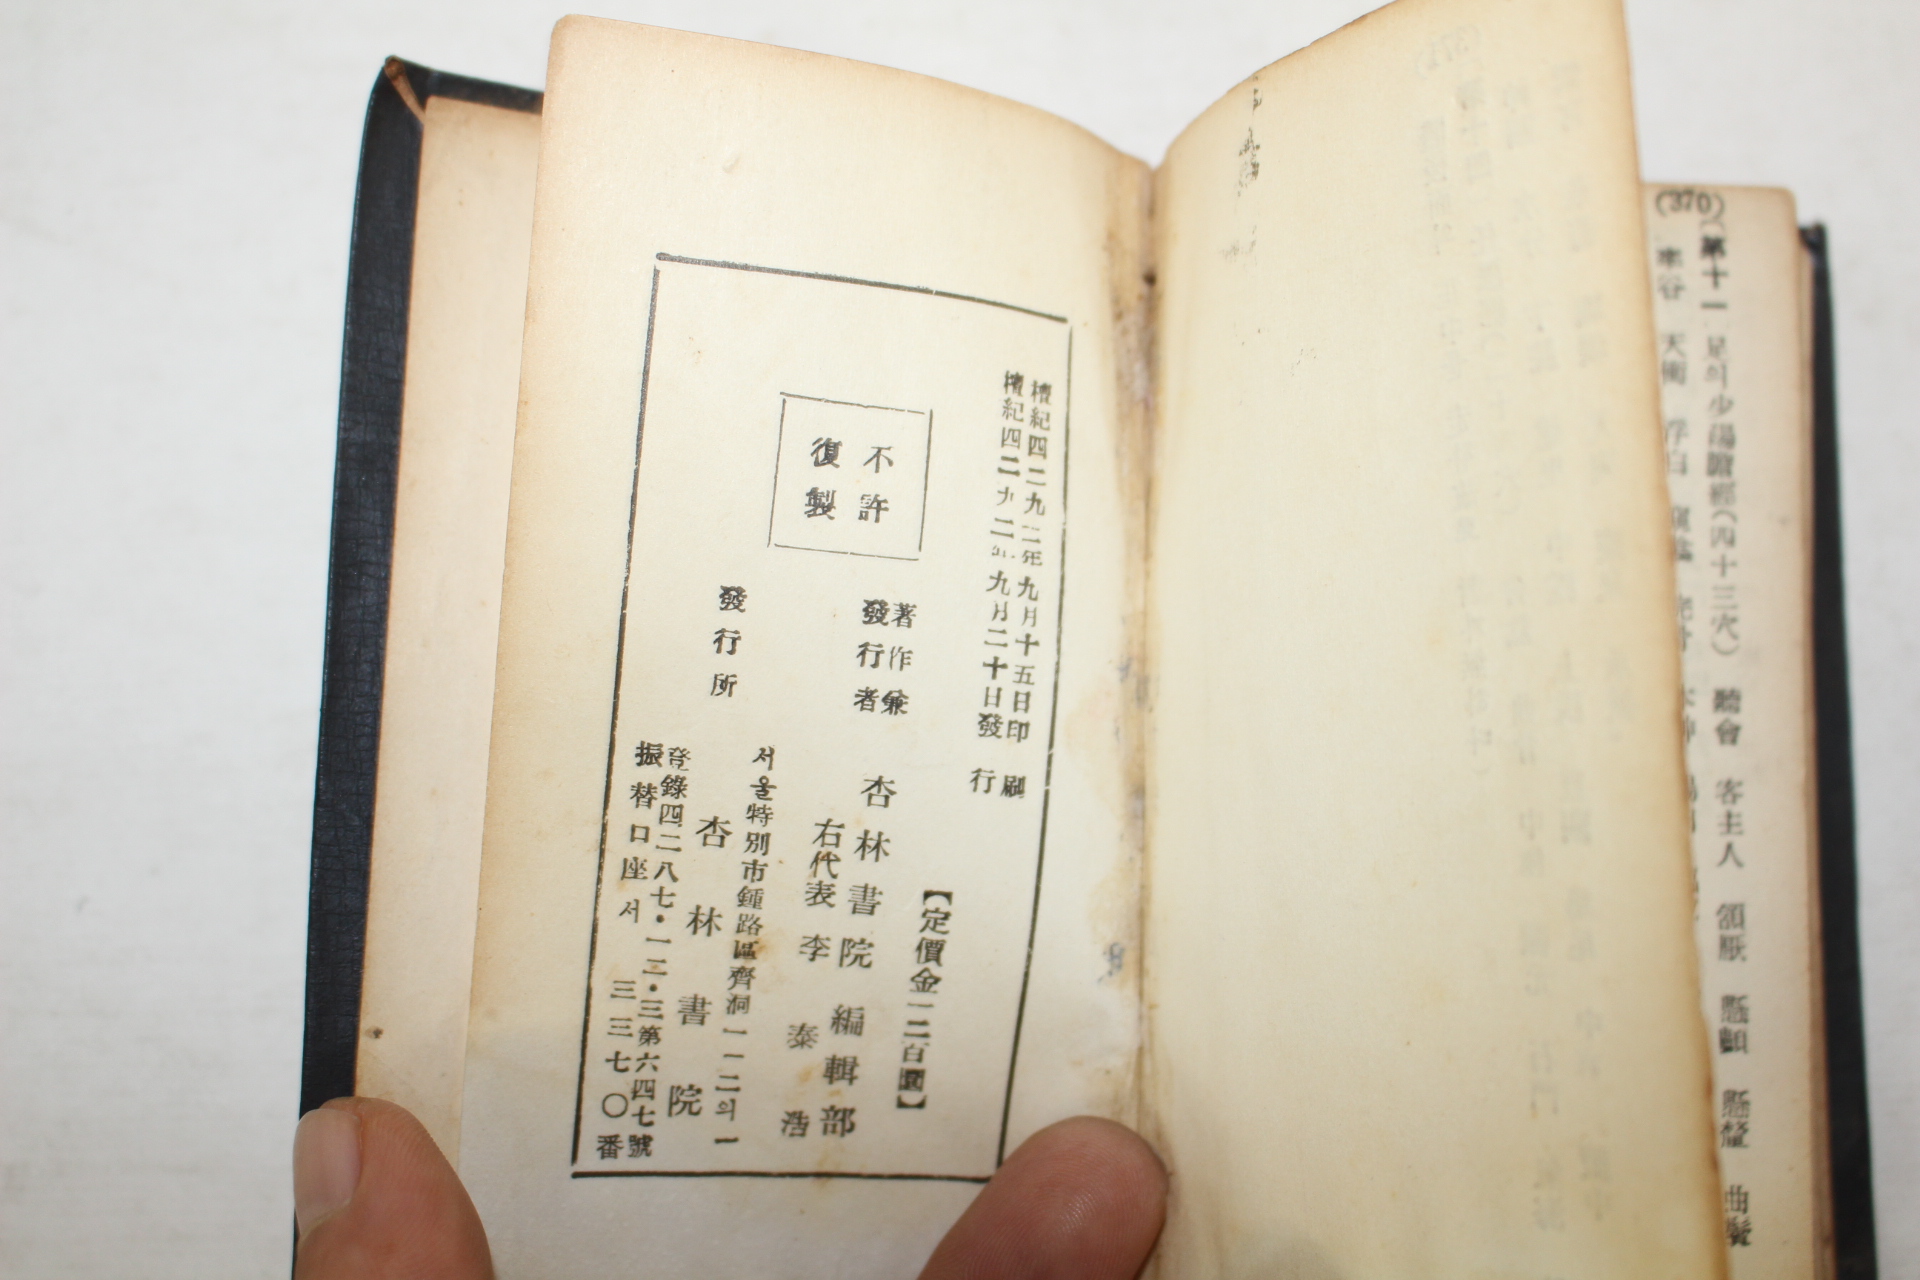 檀紀四二九二年九月十五日印刷
檀紀四二九二年九月二十日發行
不許
復製
【定價金一二百圜】
著作兼
發行者
杏林書院編輯部
右代表 李泰浩
서울特別市鍾路區齊洞一一二의一
發行所
杏林書院
登錄四二八七・一二・三第六四七號
振替口座서三三七〇番
(370)
第十一 足의少陽膽經(四十三穴) 聽會 客主人 頷厭 懸顱 懸釐 曲鬢
率谷 天衝 浮白